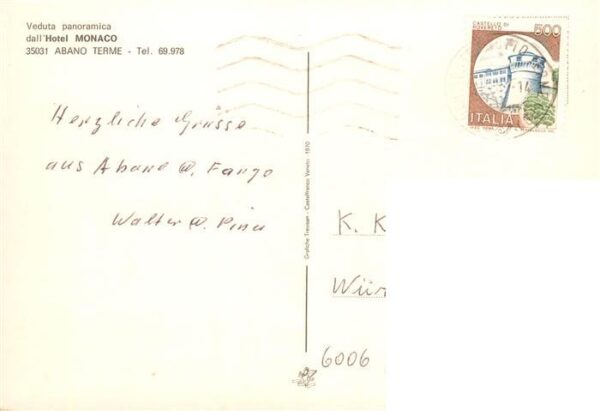 Veduta panoramica
dall'Hotel MONACO
35031 ABANO TERME - Tel. 69.978
CASTELLO DI
ROVERETO
500
ITALIA
Herzliche Grüsse
aus Abano @. Fango
Walter @. Pina
K. K
Wür
6006
Grafiche Trevisan - Castelfranco Veneto